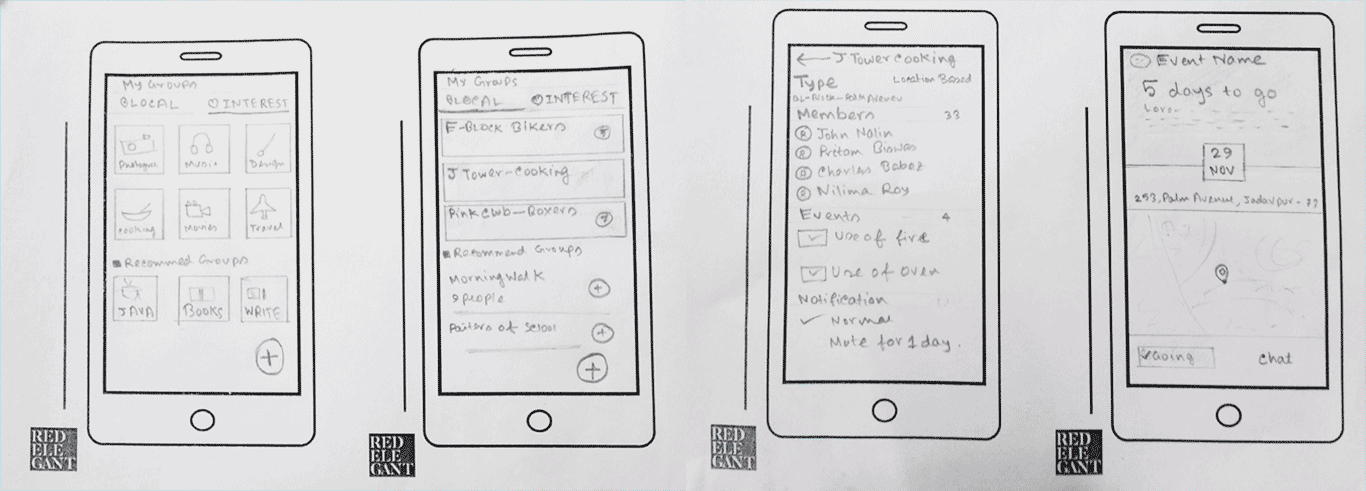 My Groups
LOCAL INTEREST
Photograp Music Design
Cooking Movies Travel
Recommed Groups
JAVA BOOKS WRITE
+
RED
ELE
GANT
My Groups
LOCAL INTEREST
E-Block Bikers
J Tower-Cooking
Pink Club-Boxers
Recommend Groups
Morning Walk
people +
of School +
+
RED
ELE
GANT
← J Tower cooking
Type Location Based
Members 33
John Nalin
Pritam Biswas
Charles Babez
Nilima Roy
Events 4
Use of fire
Use of Oven
Notification
Normal
Mute for 1 day.
RED
ELE
GANT
Event Name
5 days to go
Lore
29
NOV
253, Palm Avenue, Jadavpur - 77
Going Chat
RED
ELE
GANT